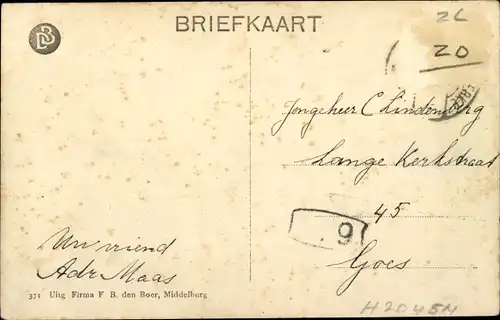 DB
BRIEFKAART
ZL
20
Jongeheer C Lindenberg
Lange Kerkstraat
45
9
Goes
Uw vriend
Adr Maas
371 Uitg Firma F B. den Boer, Middelburg
H2045N